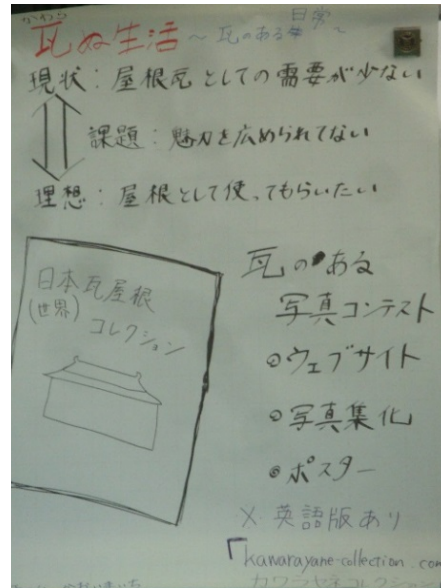 かわら
瓦ぬ生活 ~瓦のある日常~
現状:屋根瓦としての需要が少ない
課題:魅力を広められてない
理想:屋根として使ってもらいたい
日本瓦屋根
(世界)
コレクション
瓦のある
写真コンテスト
◎ウェブサイト
◎写真集化
◎ポスター
×.英語版あり
「kawarayane-collection.com
カワラヤネコレクション